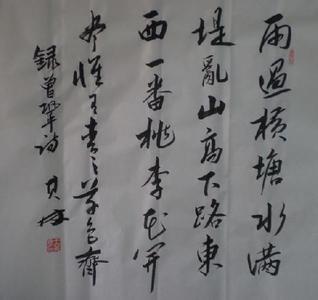 雨過横塘水滿
堤亂山高下路東
西一番桃李花開
盡惟有青青草色齊
録曾鞏詩